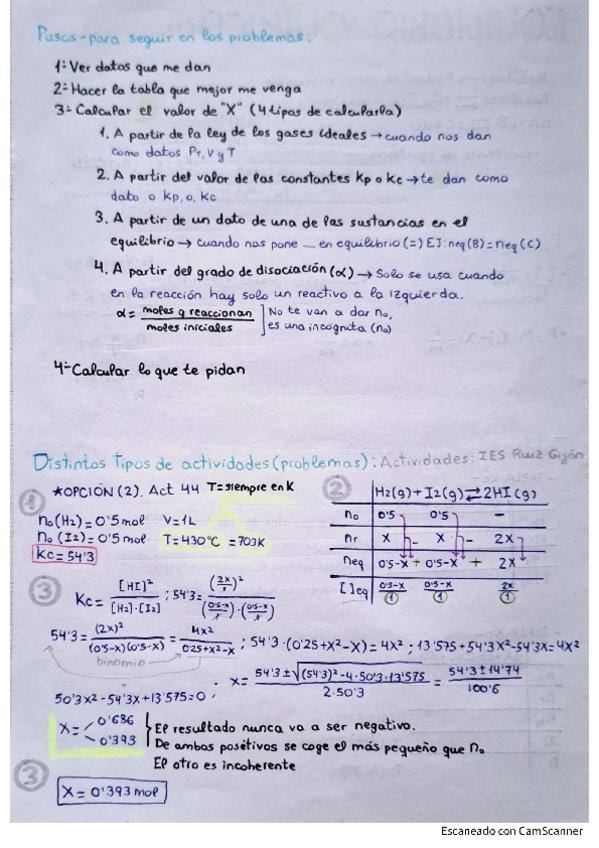 Pasos para seguir en los problemas:
1º Ver datos que me dan
2º Hacer la tabla que mejor me venga
3º Calcular el valor de "X" (4 tipos de calcularla)
1. A partir de la ley de los gases ideales → cuando nos dan
como datos PT, V y T
2. A partir del valor de las constantes Kp o Kc → te dan como
dato o Kp, o, Kc
3. A partir de un dato de una de las sustancias en el
equilibrio → cuando nos pone __ en equilibrio (=) EJ: neq(B) = neq(C)
4. A partir del grado de disociación (α) → Solo se usa cuando
en la reacción hay solo un reactivo a la izquierda.
α = moles q reaccionan / moles iniciales ] No te van a dar no,
es una incognita (no)
4º Calcular lo que te pidan
Distintos Tipos de actividades (problemas): Actividades: IES Ruiz Gijón
① *OPCIÓN (2). Act 44 T = siempre en K
no (H2) = 0'5 mol V = 1L
no (I2) = 0'5 mol T = 430°C = 703K
Kc = 54'3
② H2(g) + I2(g) ⇄ 2HI(g)
no 0'5 0'5 –
nr X - X - 2X
neq 0'5-X + 0'5-X + 2X
[ ]eq 0'5-X / 1 0'5-X / 1 2X / 1
③ Kc = [HI]² / [H2]·[I2] ; 54'3 = (2X/1)² / (0'5-X/1)·(0'5-X/1)
54'3 = (2X)² / (0'5-X)(0'5-X) = 4X² / 0'25+X²-X ; 54'3·(0'25+X²-X) = 4X² ; 13'575+54'3X²-54'3X = 4X²
binomio
50'3X² - 54'3X + 13'575 = 0 ; X = 54'3 ± √(54'3)² - 4·50'3·13'575 / 2·50'3 = 54'3 ± 14'74 / 100'6
X = 0'686
0'393
El resultado nunca va a ser negativo.
De ambos positivos se coge el más pequeño que no
El otro es incoherente
③ X = 0'393 mol
Escaneado con CamScanner